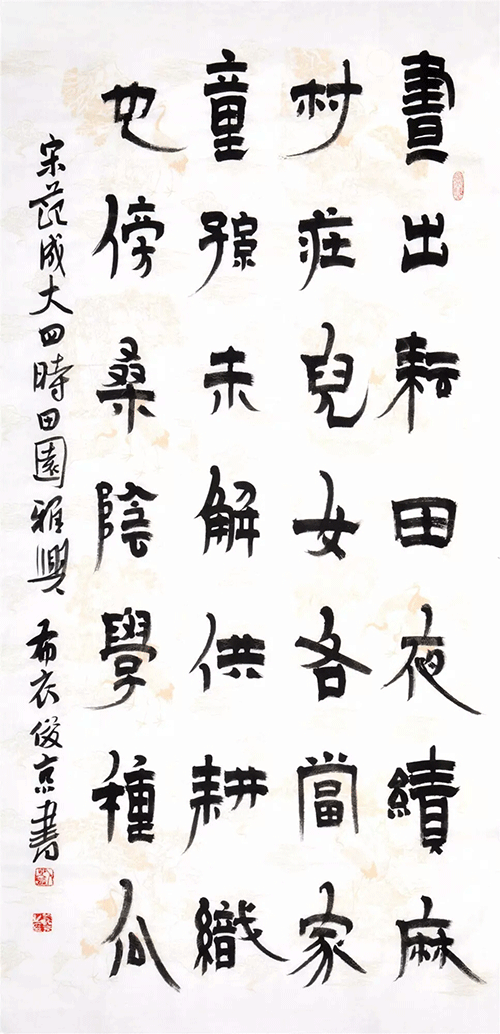 晝出耘田夜績麻
村庄兒女各當家
童孫未解供耕織
也傍桑陰學種瓜
宋范成大四時田園雅興 布衣俊京書